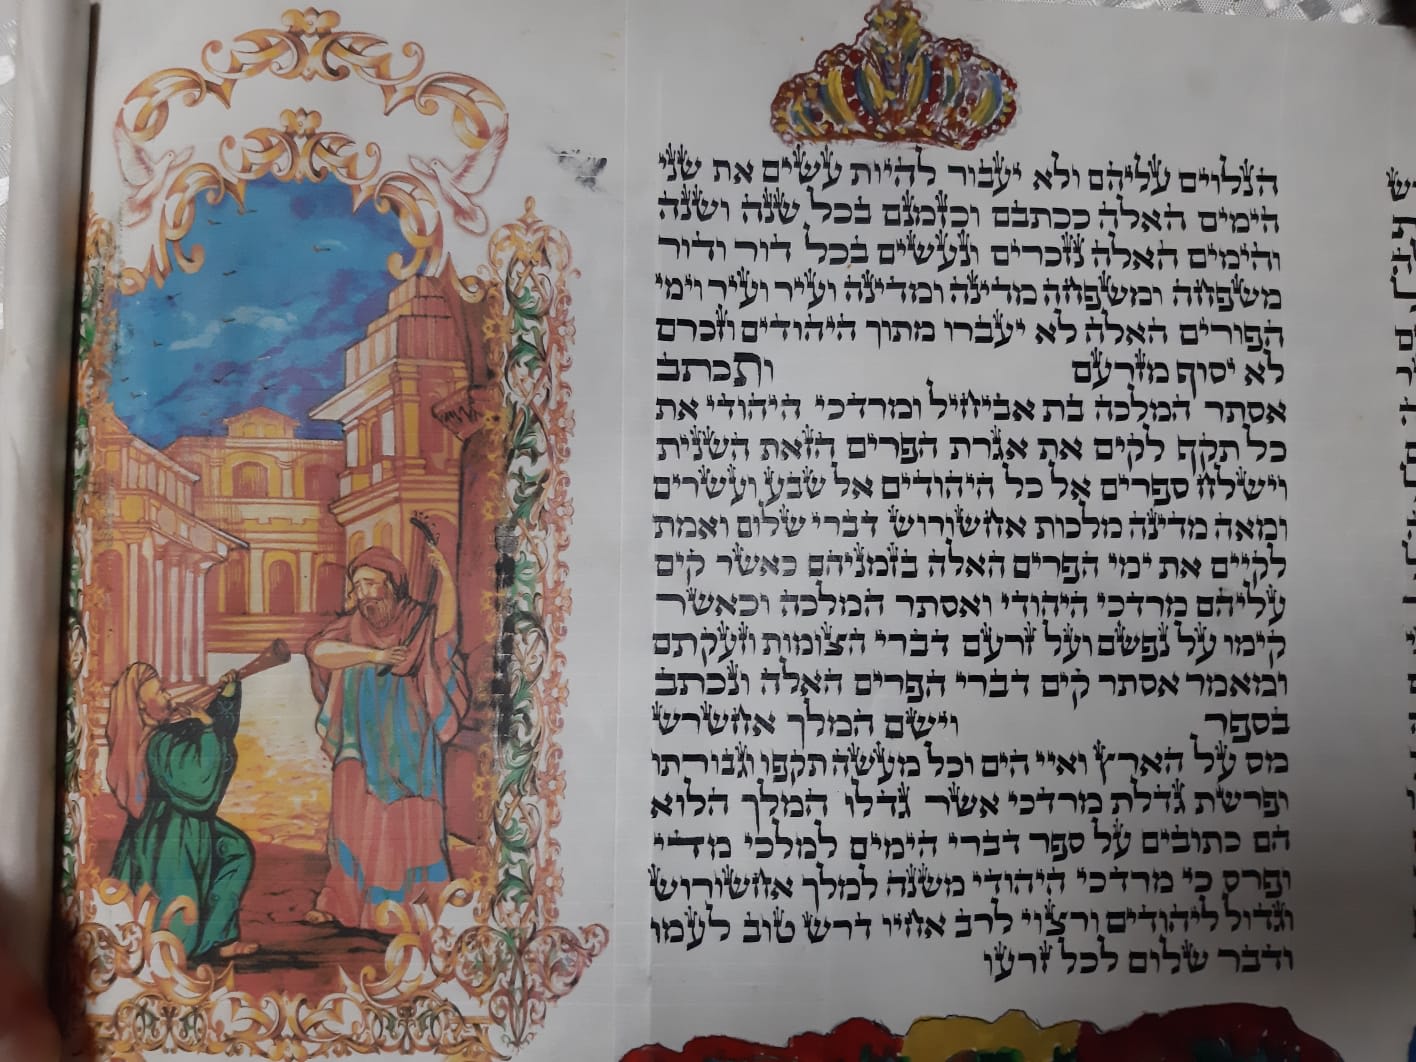 הנלוים עליהם ולא יעבור להיות עשים את שני
הימים האלה ככתבם וכזמנם בכל שנה ושנה
והימים האלה נזכרים ונעשים בכל דור ודור
משפחה ומשפחה מדינה ומדינה ועיר ועיר וימי
הפורים האלה לא יעברו מתוך היהודים וזכרם
לא יסוף מזרעם ותכתב
אסתר המלכה בת אביחיל ומרדכי היהודי את
כל תקף לקים את אגרת הפרים הזאת השנית
וישלח ספרים אל כל היהודים אל שבע ועשרים
ומאה מדינה מלכות אחשורוש דברי שלום ואמת
לקיים את ימי הפרים האלה בזמניהם כאשר קים
עליהם מרדכי היהודי ואסתר המלכה וכאשר
קימו על נפשם ועל זרעם דברי הצומות וזעקתם
ומאמר אסתר קים דברי הפרים האלה ונכתב
בספר וישם המלך אחשרש
מס על הארץ ואיי הים וכל מעשה תקפו וגבורתו
ופרשת גדלת מרדכי אשר גדלו המלך הלוא
הם כתובים על ספר דברי הימים למלכי מדי
ופרס כי מרדכי היהודי משנה למלך אחשורוש
וגדול ליהודים ורצוי לרב אחיו דרש טוב לעמו
ודבר שלום לכל זרעו